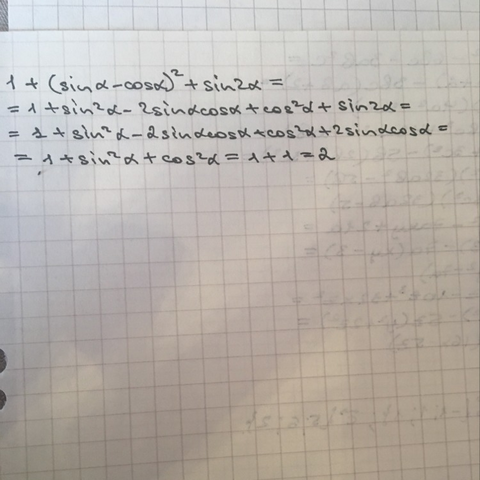 1 + (sinα - cosα)² + sin2α =
= 1 + sin²α - 2sinαcosα + cos²α + sin2α =
= 1 + sin²α - 2sinαcosα + cos²α + 2sinαcosα =
= 1 + sin²α + cos²α = 1 + 1 = 2